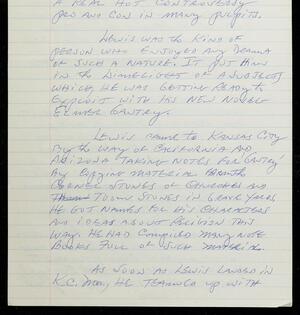 A REAL HOT CONTROVERSY
PRO AND CON IN MANY PULPITS.
LEWIS WAS THE KIND OF
PERSON WHO ENJOYED ANY DRAMA
OF SUCH A NATURE. IT PUT HIM
IN THE LIMELIGHT OF A SUBJECT
WHICH, HE WAS GETTING READY TO
EXPLOIT WITH HIS NEW NOVEL
ELMER GANTRY.
LEWIS CAME TO KANSAS CITY
BY THE WAY OF CALIFORNIA AND
ARIZONA TAKING NOTES FOR "GANTRY"
BY COPYING MATERIAL
CORNER STONES OF CHURCHES AND
TOMB STONES IN GRAVE YARDS
HE GOT NAMES FOR HIS CHARACTERS
AND IDEAS ABOUT RELIGION THIS
WAY. HE HAD COMPILED MANY NOTE
BOOKS FULL OF SUCH MATERIAL.
AS SOON AS LEWIS LANDED IN
K.C. MO., HE TEAMED UP WITH